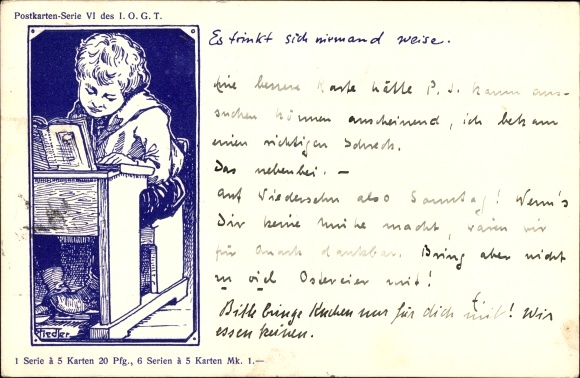 Postkarten-Serie VI des I. O. G. T.
Es trinkt sich niemand weise.
Eine bessere Karte hätte P. J. kaum aus-
suchen können anscheinend, ich bekam
einen richtigen Schreck.
Das nebenbei. —
Auf Wiedersehn also Sonntag! Wenn's
Dir keine Mühe macht, wären wir
für dankbar. Bring aber nicht
zu viel Ostereier mit!
Bitte bringe Kuchen nur für dich mit! Wir
essen keinen.
Fiedler
1 Serie à 5 Karten 20 Pfg., 6 Serien à 5 Karten Mk. 1.—